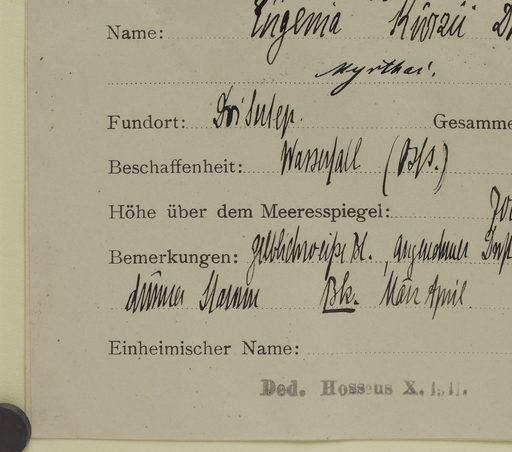 Name: Eugenia Kurzii D
Myrthac.
Fundort: Doi Sutep. Gesamme
Beschaffenheit: Wasserfall
Höhe über dem Meeresspiegel: 70
Bemerkungen: gelblichweiße Bl., angenehmer Duft
dünner Stamm Bk. März April.
Einheimischer Name:
Ded. Hosseus X.